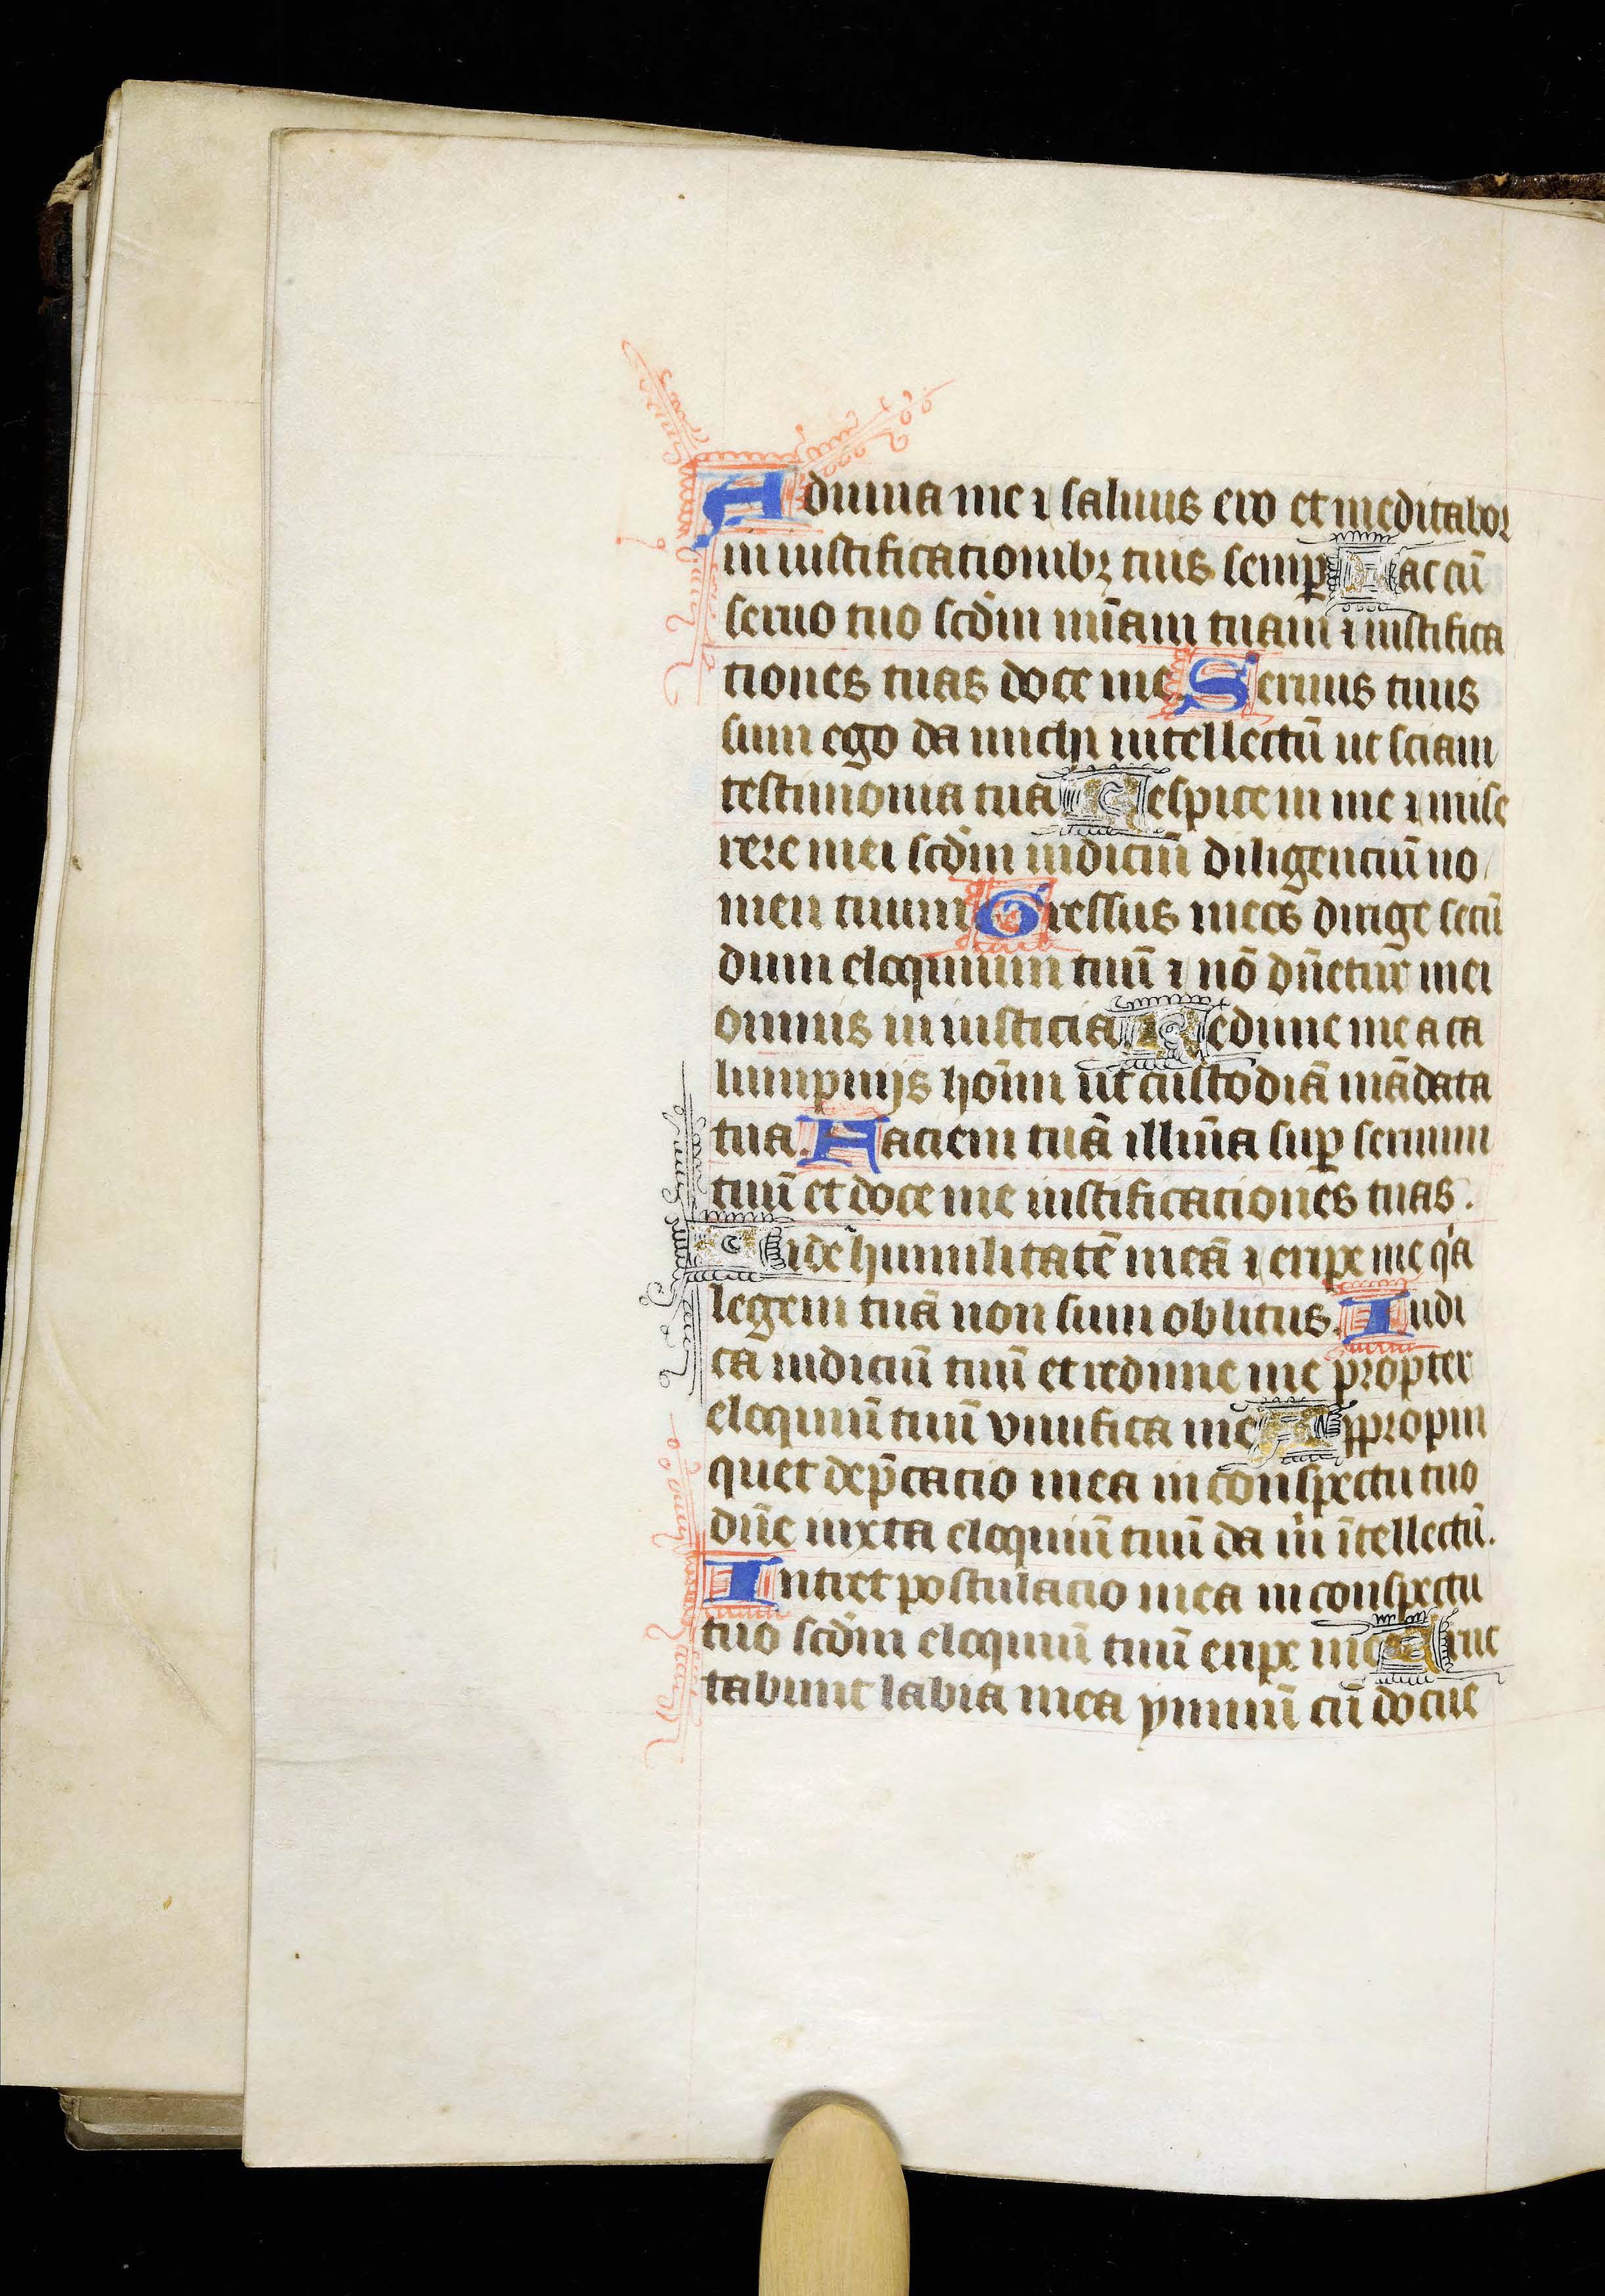 Adiuua me ⁊ saluus ero et meditabor
in iustificationibꝫ tuis semꝑ Fac cū
seruo tuo scd̄m mīam tuam ⁊ iustifica
tiones tuas doce me Seruus tuus
sum ego da michi intellectū ut sciam
testimonia tua Respice in me ⁊ mise
rere mei scd̄m iudiciū diligenciū no
men tuum Gressus meos dirige secū
dum eloquium tuū ⁊ nō dn̄etur mei
omnis iniusticia Redime me a ca
lumpnijs hoīm ut custodiā mādata
tua. Faciem tuā illum̄a suꝑ seruum
tuū et doce me iustificationes tuas.
Vide humilitatē meā ⁊ eripe me qͥa
legem tuā non sum oblitus. Iudi
ca iudiciū tuū et redime me propter
eloquiū tuū viuifica me Appropin
quet dep̄cacio mea in conspectu tuo
dn̄e iuxta eloquiū tuū da m̄ ītellectū.
Intret postulacio mea in conspectu
tuo scd̄m eloquiū tuū eripe me Eruc
tabunt labia mea ymnū cū docue